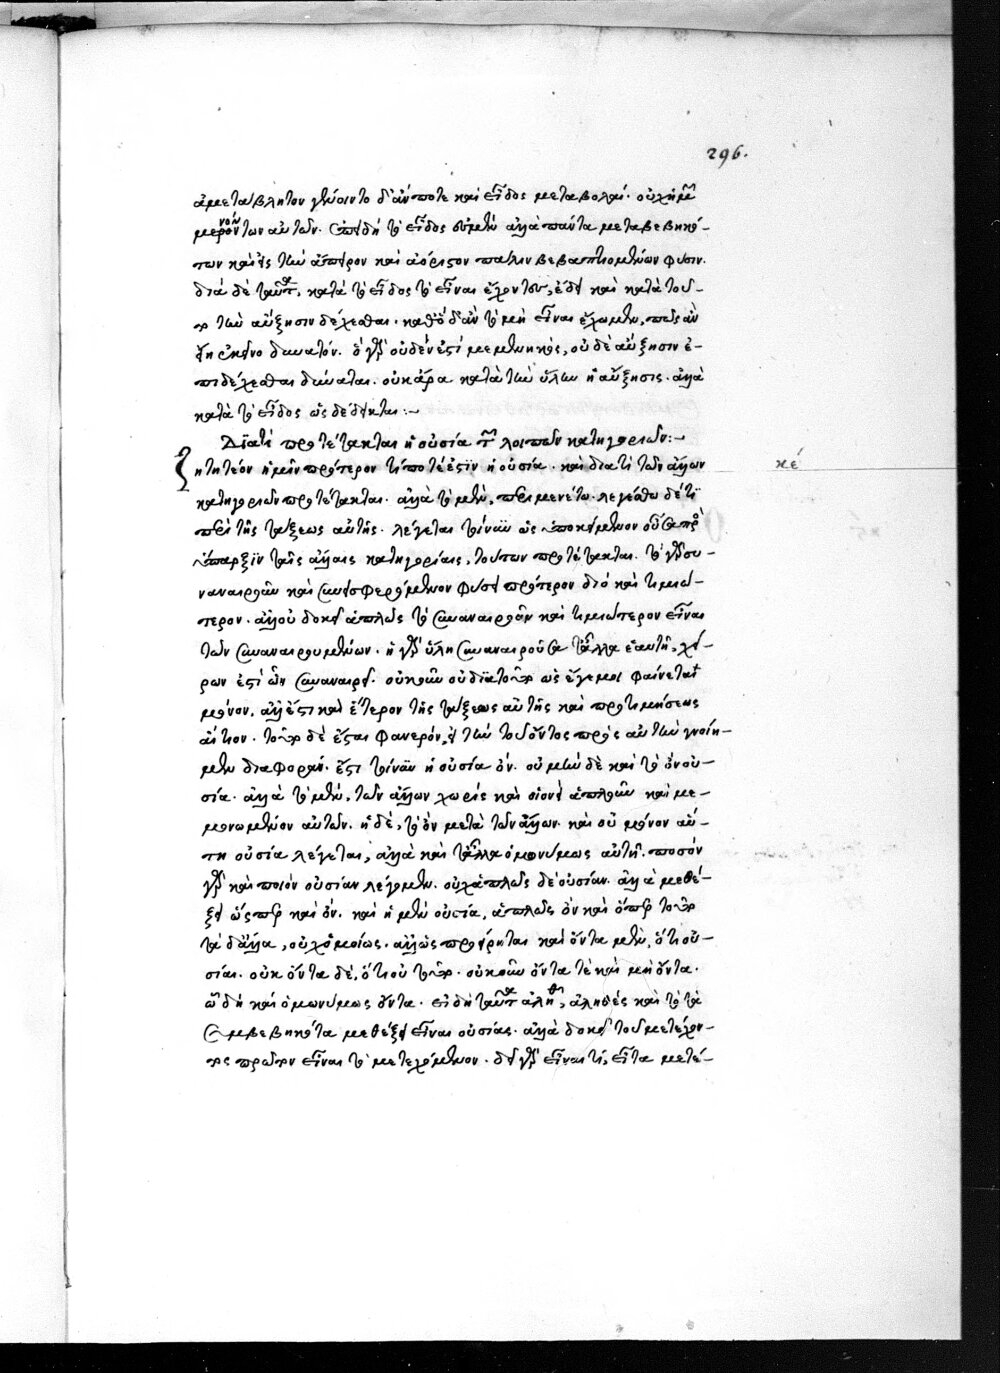 296.
ἀμετάβλητον γένοιντο δ' ἄν ποτε καὶ εἴδος μεταβολαί. οὐχὶ μὴ
μερόντων αὐτῶν. ἐπειδὴ τὸ εἶδος οὐ μὴν ἀλλὰ πάντα μεταβεβηκό-
των καὶ εἰς τὴν ἄπειρον καὶ ἀόριστον πάλιν βεβαπτισμένων φύσιν.
διὰ δὲ ταῦτα, κατὰ τὸ εἶδος τὸ εἶναι ἔχοντος, ἔδει καὶ κατὰ τοῦ-
το τὴν αὔξησιν δέχεσθαι. καθὸ δ' ἂν τὸ μὴ εἶναι ἔχωμεν, πῶς ἂν
εἴη ἐκεῖνο δυνατόν. ὃ γὰρ οὐδέν ἐστι μεμενηκός, οὐδὲ αὔξησιν ἐ-
πιδέχεσθαι δύναται. οὐκ ἄρα κατὰ τὴν ὕλην ἡ αὔξησις. ἀλλὰ
κατὰ τὸ εἶδος ὡς δέδεικται:~
Διατί προτέτακται ἡ οὐσία τῶν λοιπῶν κατηγοριῶν:~
κέ
ζητητέον ἡμῖν πρότερον τί ποτέ ἐστϊν ἡ οὐσία. καὶ διατί τῶν ἄλλων
κατηγοριῶν προτέτακται. ἀλλὰ τὸ μὲν, περιμενέτω. λεγέσθω δέ τϊ
περὶ τῆς τάξεως αὐτῆς. λέγεται τοίνυν ὡς ὑποκείμενον οὖσα πρὸς
ὕπαρξϊν ταῖς ἄλλαις κατηγορίαις, τούτων προτέτακται. τὸ γὰρ συ-
ναναιροῦν καὶ συνεισφερόμενον φύσει πρότερον διὸ καὶ τιμιώ-
τερον. ἀλλ' οὐ δοκεῖ ἁπλῶς τὸ συναναιροῦν καὶ τιμιώτερον εἶναι
τῶν συναναιρουμένων. ἡ γὰρ ὕλη συναναιροῦσα τἄλλα ἑαυτῇ, χεί-
ρων ἐστὶ ὧν συναναιρεῖ. οὐκοῦν οὐ διὰ τοῦτο ὡς ἔγεμοι φαίνεται
μόνον, ἀλλ' ἔστι καὶ ἕτερον τῆς τάξεως αὐτῆς καὶ προτιμήσεως
αἴτιον. τοῦτο δὲ ἔσται φανερὸν, εἰ τὴν τοῦ ὄντος πρὸς αὐτὴν γνοίη-
μεν διαφοράν. ἔστι τοίνυν ἡ οὐσία ὄν. οὐ μὴν δὲ καὶ τὸ ὂν οὐ-
σία. ἀλλὰ τὸ μὲν, τῶν ἄλλων χωρὶς καὶ οἱονεὶ ἁπλοῦν καὶ με-
μονωμένον αὐτῶν. ἡ δὲ, τὸ ὂν μετὰ τῶν ἄλλων. καὶ οὐ μόνον αὕ-
τη οὐσία λέγεται, ἀλλὰ καὶ τἄλλα ὁμωνύμως αὐτῇ. ποσὸν
γὰρ καὶ ποιὸν οὐσίαν λέγομεν. οὐχ ἁπλῶς δὲ οὐσίαν. ἀλλὰ μεθέ-
ξει ὥσπερ καὶ ὄν. καὶ ἡ μὲν οὐσία, ἁπλῶς ὂν καὶ ὅπερ τοῦτο
τὰ δ' ἄλλα, οὐχ ὁμοίως. ἀλλ' ὡς προείρηται καὶ ὄντα μὲν, ὅτι οὐ-
σίαι. οὐκ ὄντα δὲ, ὅτι οὐ τοῦτο. οὐκοῦν ὄντα τὲ καὶ μὴ ὄντα.
ᾧ δὴ καὶ ὁμωνύμως ὄντα. εἰ δὴ ταῦτα ἀληθῆ, ἀληθὲς καὶ τὸ τὰ
συμβεβηκότα μεθέξει εἶναι οὐσίας. ἀλλὰ δοκεῖ τοῦ μετέχον-
τος πρῶτον εἶναι τὸ μετεχόμενον. δεῖ γὰρ εἶναί τι, εἶτα μετέ-